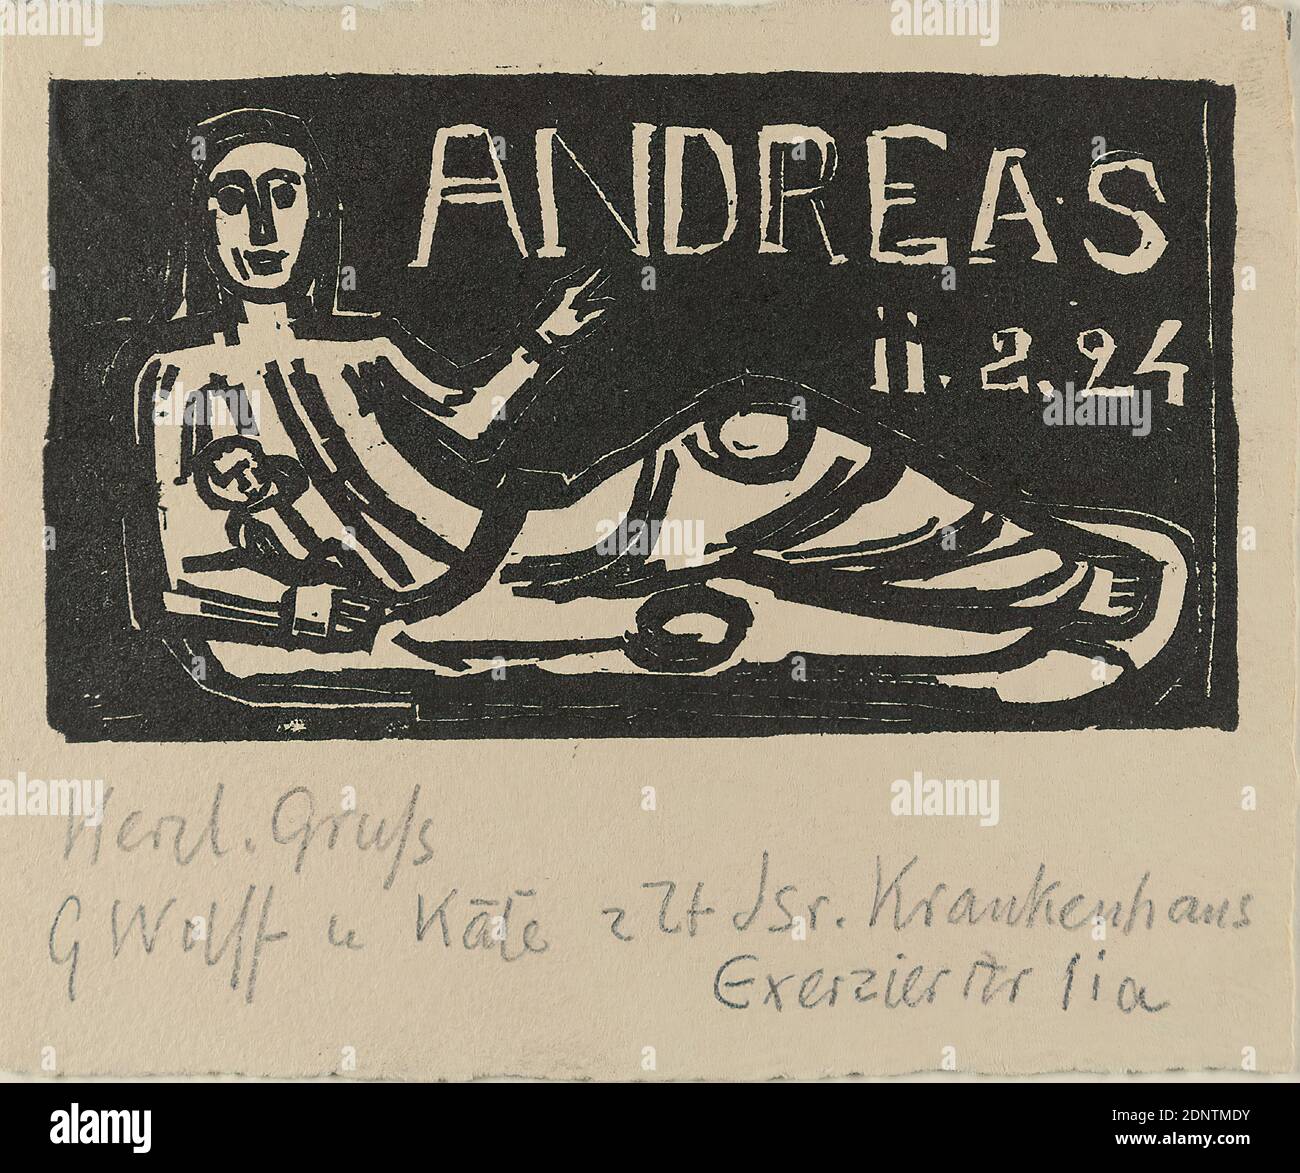 ANDREAS
11.2.24
Herzl. Gruß
G Wolff u Käte z Zt Isr. Krankenhaus
Exerzierstr 11a
alamy
Image ID: 2DNTMDY
www.alamy.com